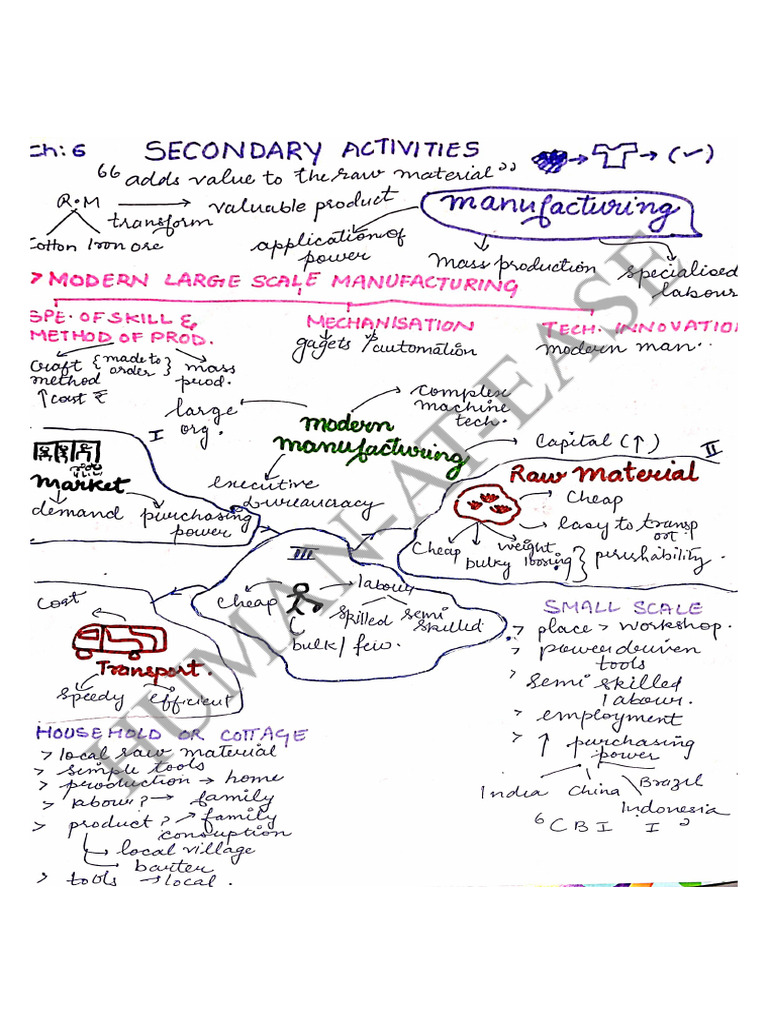 Ch: 6 SECONDARY ACTIVITIES → → (✓)
“ adds value to the raw material ”
R.M → valuable product manufacturing
transform
Cotton Iron ore
application of power
mass production
specialised labour
> MODERN LARGE SCALE MANUFACTURING
SPE. OF SKILL & METHOD OF PROD.
MECHANISATION
TECH. INNOVATION
craft method { made to order } mass prod.
↑ cost ₹
gagets automation
modern man..
modern manufacturing
large org.
complex machine tech.
Capital (↑)
executive bureaucracy
I
Market
demand purchasing power
II
Raw Material
Cheap
easy to transport
Cheap bulky weight loosing } perishability
III
cheap
labour
skilled semi skilled
bulk / few.
Cost
Transport.
speedy efficient
SMALL SCALE
> place > workshop.
> power driven tools
> semi skilled labour.
> employment
> ↑ purchasing power
India China Brazil Indonesia
‘ C B I I ’
HOUSEHOLD OR COTTAGE
> local raw material
> simple tools
> production → home
> labour ? → family
> product ? → family consuption
→ local village
→ barter
> tools → local.
HUMAN-AT-EASE